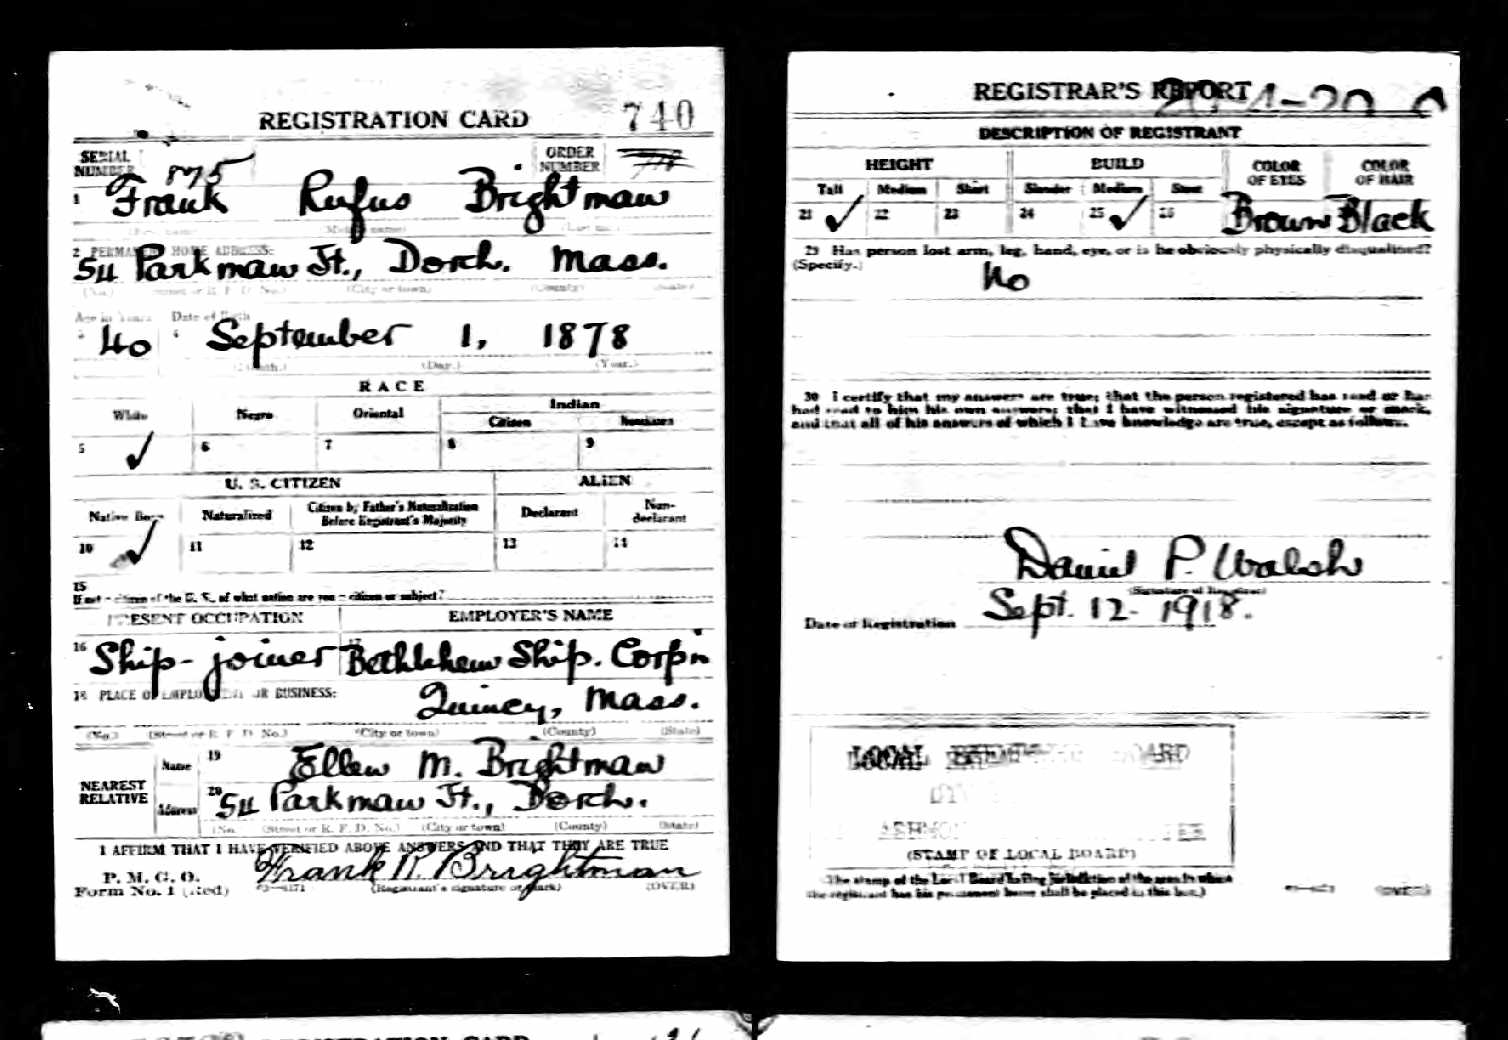 REGISTRATION CARD 740
SERIAL NUMBER 875 ORDER NUMBER
1 Frank Rufus Brightman
(First name) (Middle name) (Last name)
2 PERMANENT HOME ADDRESS:
54 Parkman St., Dorch. Mass.
(No.) (Street or R. F. D. No.) (City or town) (County) (State)
Age in Years Date of Birth
3 40 4 September 1, 1878
(Month.) (Day.) (Year.)
RACE
White Negro Oriental Indian
Citizen Noncitizen
5 ✓ 6 7 8 9
U. S. CITIZEN ALIEN
Native Born Naturalized Citizen by Father's Naturalization Before Registrant's Majority Declarant Non-declarant
10 ✓ 11 12 13 14
15
If not a citizen of the U. S., of what nation are you a citizen or subject?
PRESENT OCCUPATION EMPLOYER'S NAME
16 Ship-joiner 17 Bethlehem Ship. Corp'n
18 PLACE OF EMPLOYMENT OR BUSINESS:
Quincy, Mass.
(No.) (Street or R. F. D. No.) (City or town) (County) (State)
NEAREST RELATIVE
Name 19 Ellen M. Brightman
Address 20 54 Parkman St., Dorch.
(No. (Street or R. F. D. No.) (City or town) (County) (State)
I AFFIRM THAT I HAVE VERIFIED ABOVE ANSWERS AND THAT THEY ARE TRUE
P. M. G. O.
Form No. 1 (Red) Frank R. Brightman
(Registrant's signature or mark) (OVER)
REGISTRAR'S REPORT
DESCRIPTION OF REGISTRANT
HEIGHT BUILD COLOR OF EYES COLOR OF HAIR
Tall Medium Short Slender Medium Stout
21 ✓ 22 23 24 25 ✓ 26 Brown Black
29 Has person lost arm, leg, hand, eye, or is he obviously physically disqualified?
(Specify.) No
30 I certify that my answers are true; that the person registered has read or has
had read to him his own answers; that I have witnessed his signature or mark,
and that all of his answers of which I have knowledge are true, except as follows:
Daniel P. Walsh
(Signature of Registrar)
Date of Registration Sept. 12 - 1918.
LOCAL BOARD
(STAMP OF LOCAL BOARD)
(The stamp of the Local Board having jurisdiction of the area in which
the registrant has his permanent home shall be placed in this box.)
(OVER)
REGISTRATION CARD